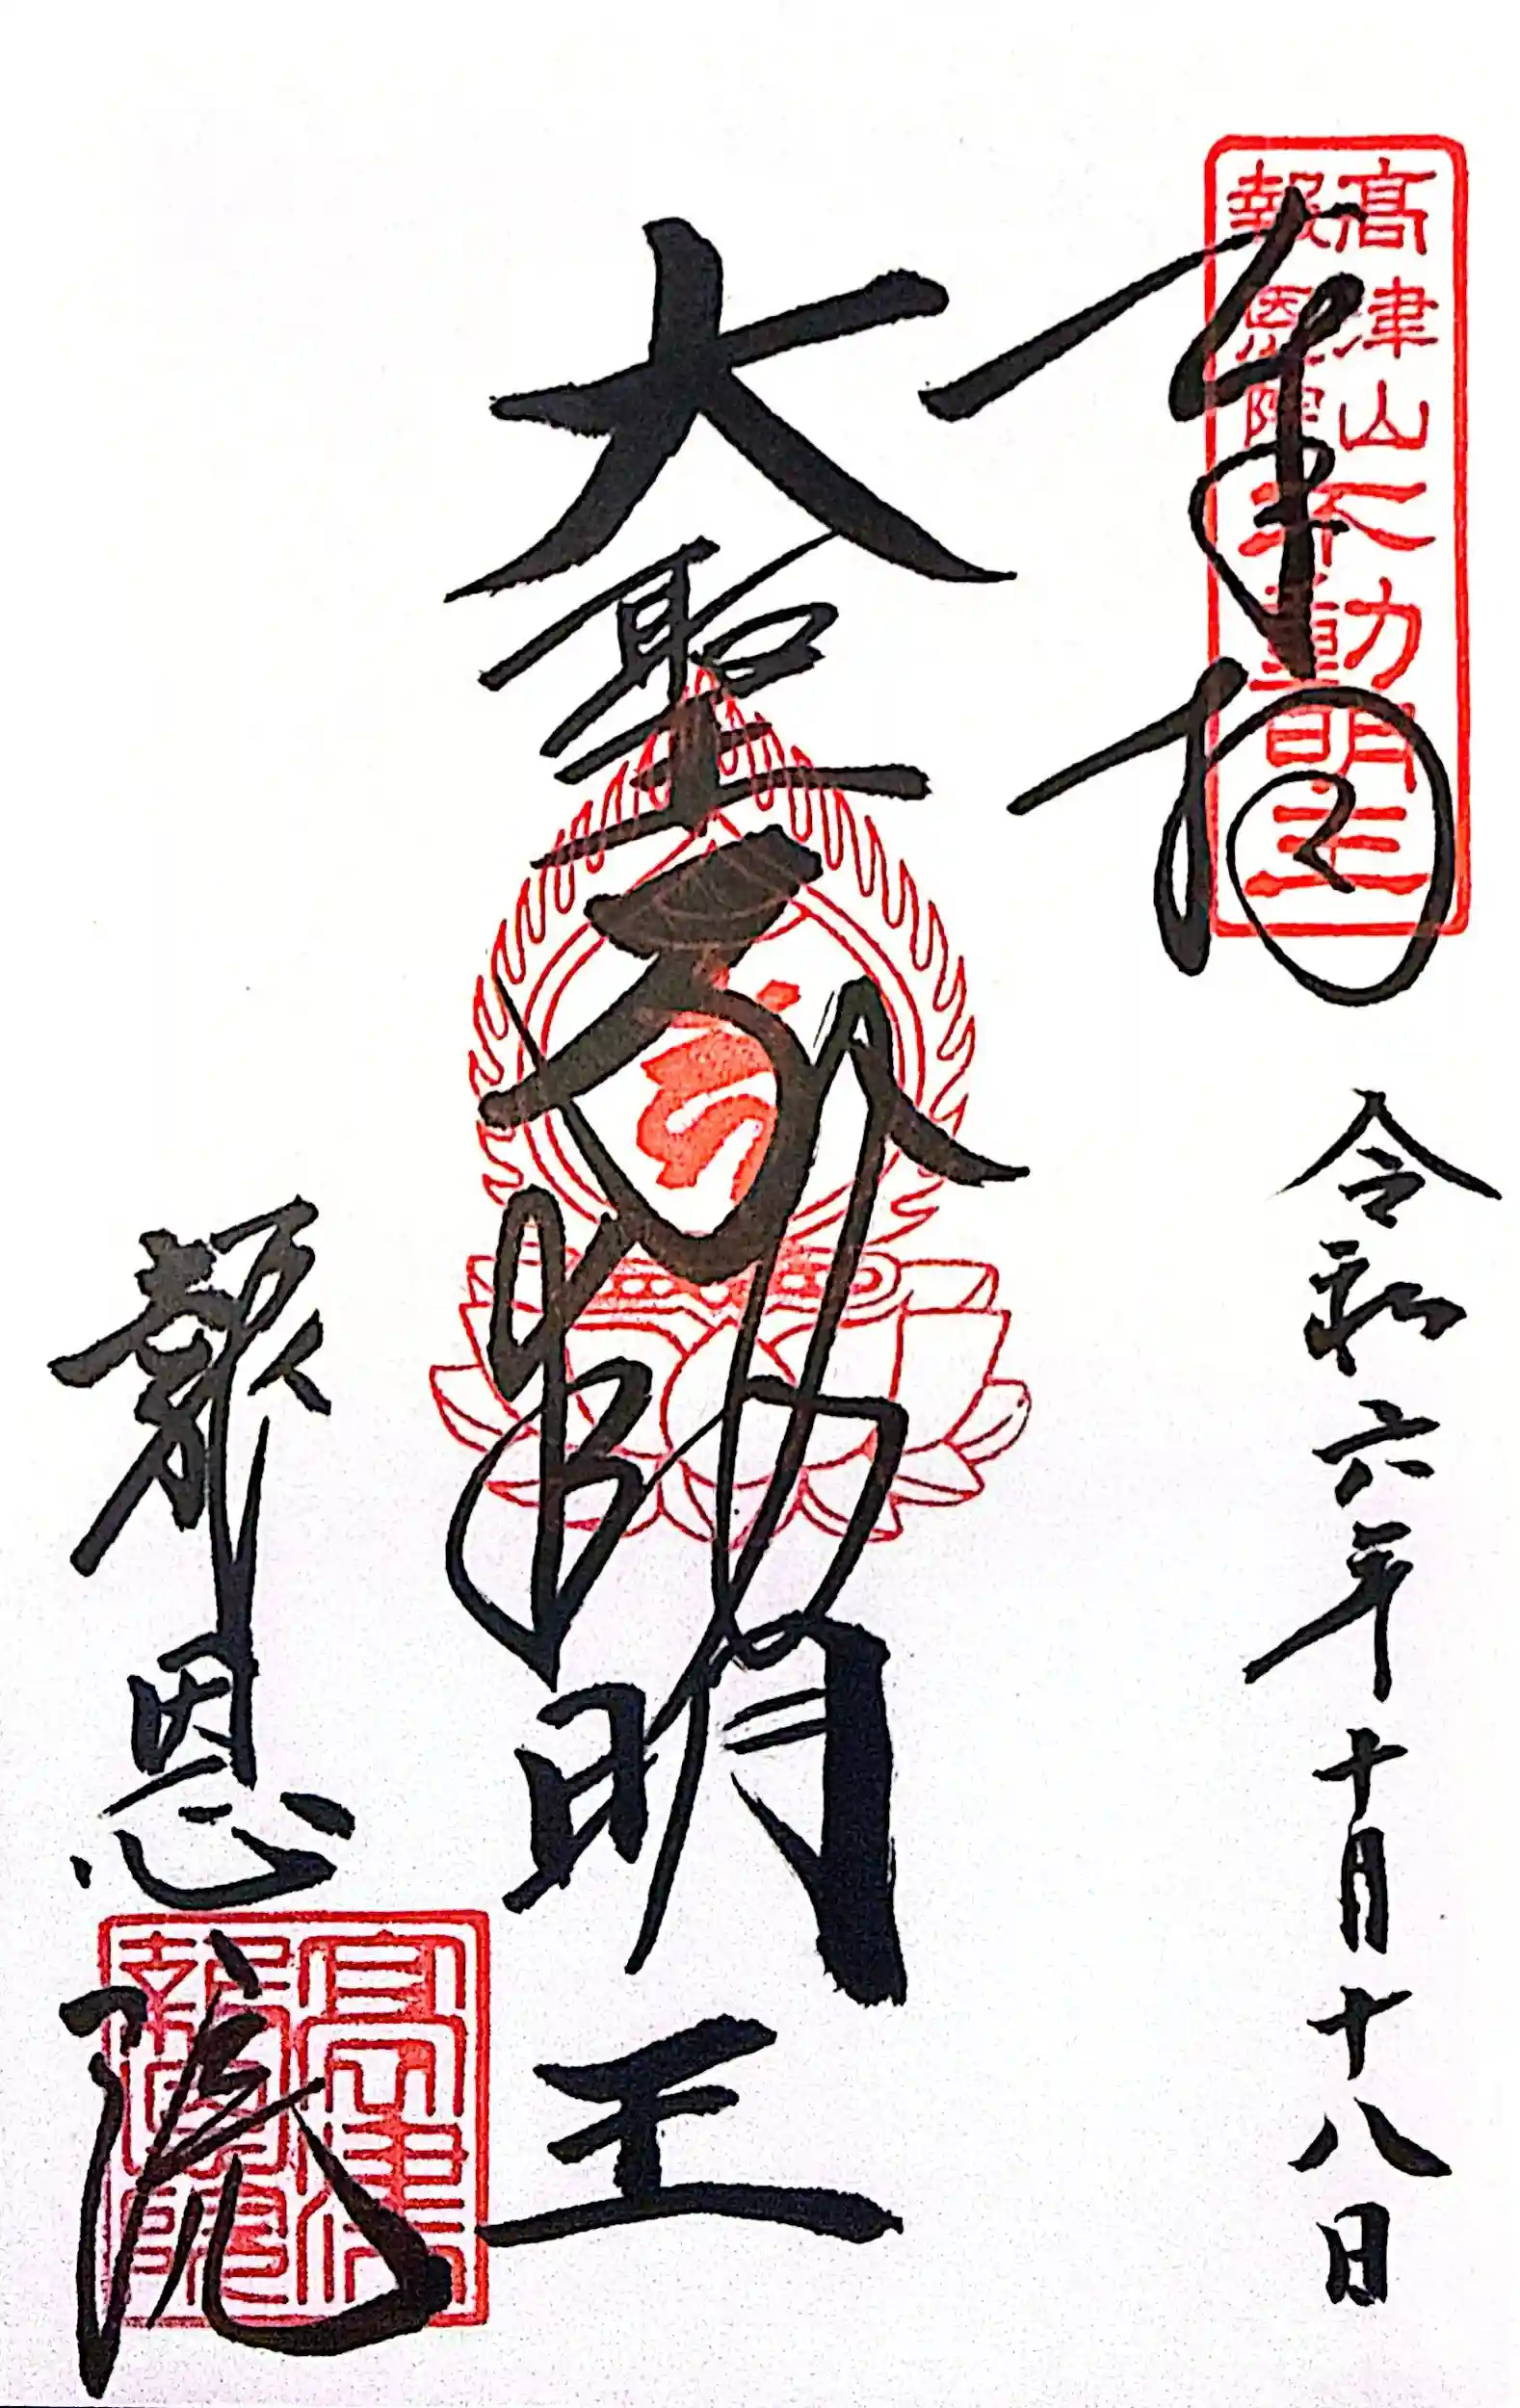 奉拝
高津山
報恩院
不動明王
令和六年十月十八日
大聖不動明王
報恩院
高津山
報恩院